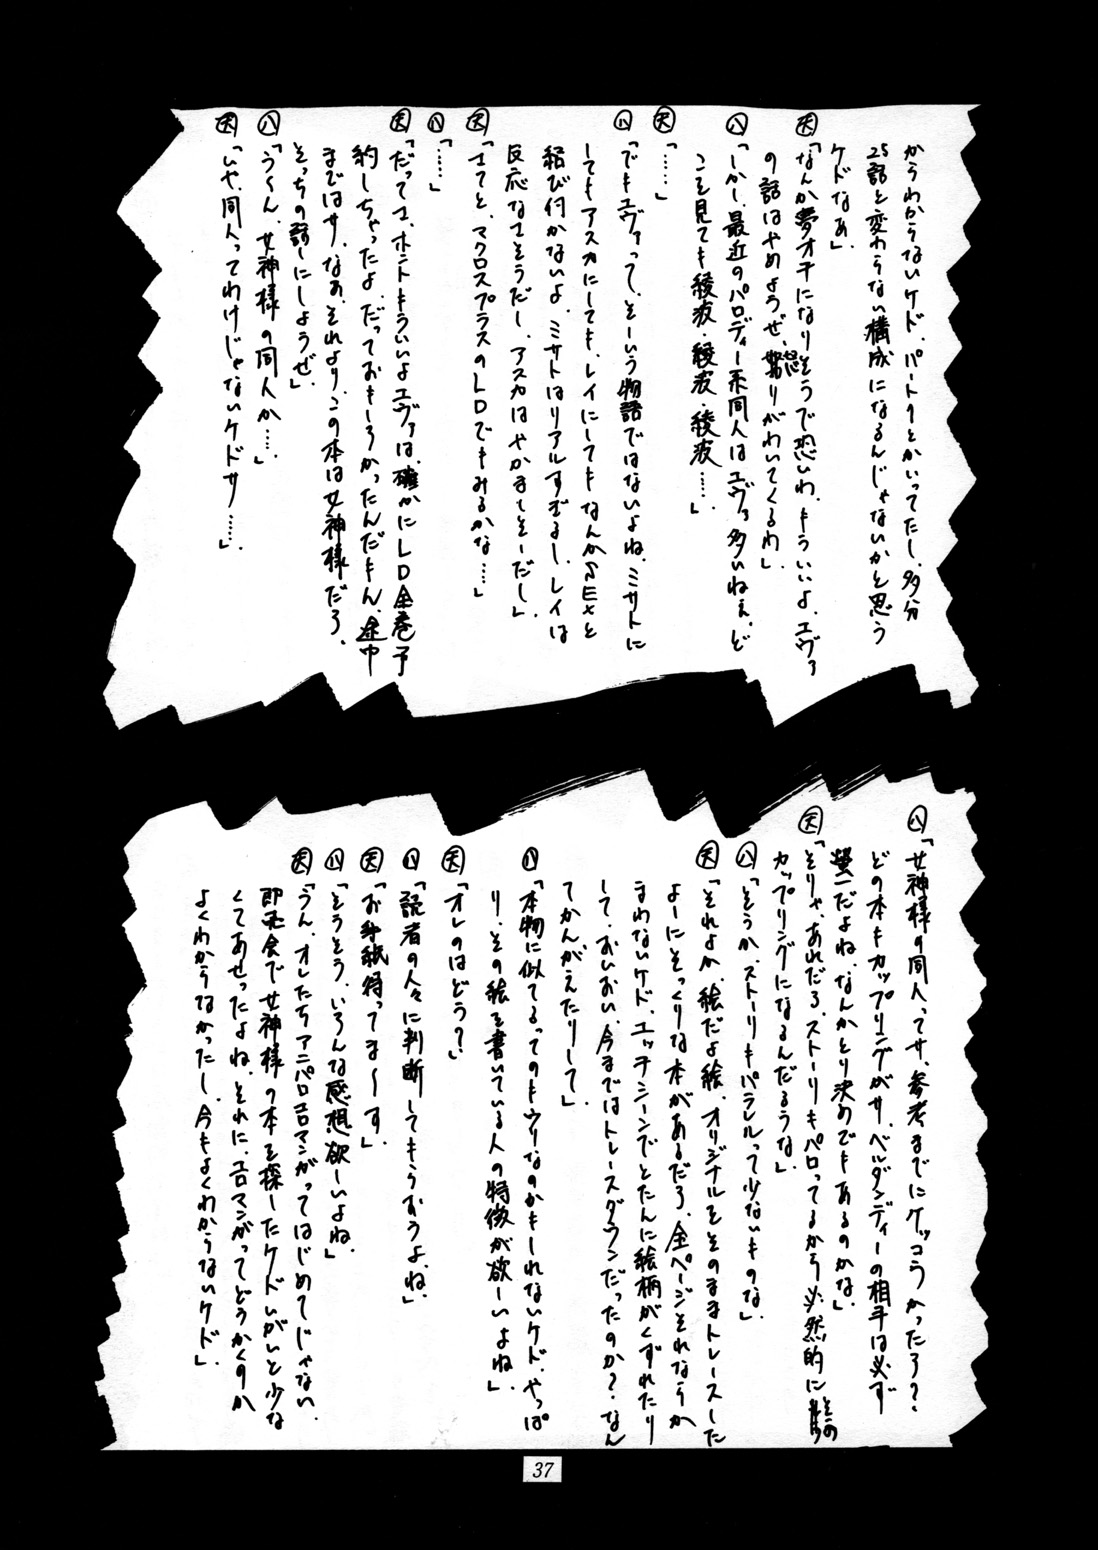 からわからないケド、パート1とかいってたし、多分
25話と変わらない構成になるんじゃないかと思う
ケドなぁ」
天「なんか夢オチになりそうで恐いわ、もういいよ、エヴァ
の話はやめようぜ、怒りがわいてくるわ」
八「しかし、最近のパロディー系同人はエヴァ多いねぇ、ど
こを見ても綾波・綾波・綾波……」
天「……」
八「でもエヴァって、そーいう物語ではないよね、ミサトに
してもアスカにしても、レイにしてもなんかSEXと
結び付かないよ、ミサトはリアルすぎるし、レイは
反応なさそうだし、アスカはやかましそーだし」
天「さてと、マクロスプラスのLDでもみるかな……」
八「……」
天「だってさ、ホントもういいよエヴァは、確かにLD全巻予
約しちゃったよ、だっておもしろかったんだもん、途中
まではサ、なあ、それより、この本は女神様だろ、
そっちの話しにしようぜ」
八「う〜ん、女神様の同人か……」
天「いや、同人ってわけじゃないケドサ……」
八「女神様の同人ってサ、参考までにケッコウかったろ?、
どの本もカップリングがサ、ベルダンディーの相手は必ず
螢一だよね、なんかとり決めでもあるのかな」
天「そりゃ、あれだろ、ストーリーもパロってるから必然的にその
カップリングになるんだろうな」
八「そうか、ストーリーもパラレルって少ないものな」
天「それよか、絵だよ絵、オリジナルをそのままトレースした
よーにそっくりな本があるだろ、全ページそれならか
まわないケド、エッチシーンでとたんに絵柄がくずれたり
して、おいおい、今まではトレースダウンだったのか?、なん
てかんがえたりして」
八「本物に似てるってのもウリなのかもしれないケド、やっぱ
り、その絵を書いている人の特徴が欲しいよね」
天「オレのはどう?」
八「読者の人々に判断してもらおうよ、ね」
天「お手紙待ってま〜す」
八「そうそう、いろんな感想欲しいよね」
天「うん、オレたちアニパロエロマンガってはじめてじゃない、
即売会で女神様の本を探したケドいがいと少な
くてあせったよね、それに、エロマンガってどうかくのか
よくわからなかったし、今もよくわからないケド」
37